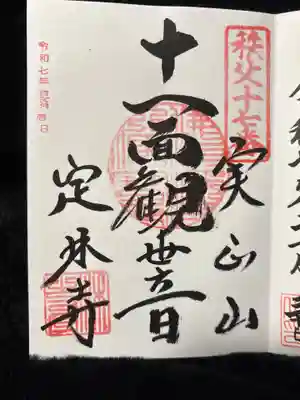 秩父十七番
実正山
十一面観世音
定林寺
令和七年